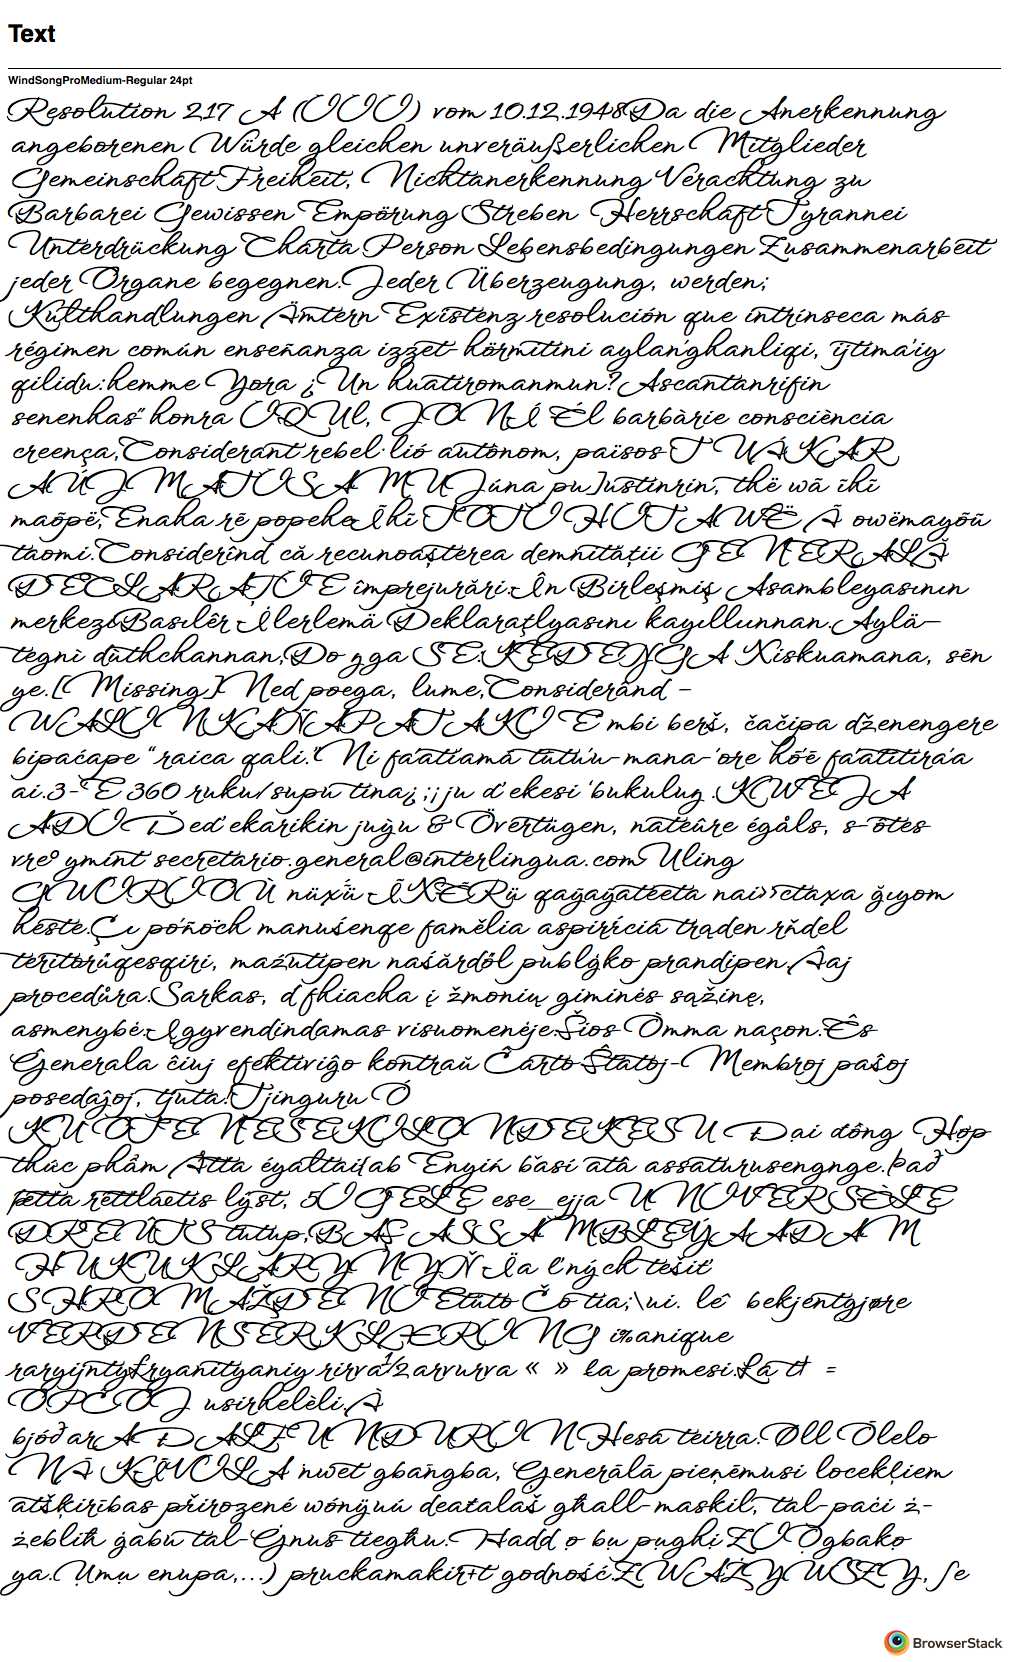 Text
WindSongProMedium-Regular 24pt
Resolution 217 A (III) vom 10.12.1948Da die Anerkennung
angeborenen Würde gleichen unveräußerlichen Mitglieder
Gemeinschaft Freiheit, Nichtanerkennung Verachtung zu
Barbarei Gewissen Empörung Streben Herrschaft Tyrannei
Unterdrückung Charta Person Lebensbedingungen Zusammenarbeit
jeder Organe begegnen.Jeder Überzeugung, werden;
Kulthandlungen Ämtern Existenz resolución que intrínseca más
régimen común enseñanza izzet hörmitini aylan'ghanliqi, ijtima'iy
qilidu:hemme Yora ¿Un huatiromanmun?Ascantanrifin
senenhas" honra IQUl, JONÍ Él barbàrie consciència
creença,Considerant rebel·lió autònom, països T WÁKAR
AÚJMATISAMUJúna pu]ustinrin, thë wã ĩhĩ
maõpë,Enaha rẽ popehe Ĩhĩ TOTIHUTAWË Ã owëmayõũ
taomi.Considerînd că recunoaşterea demnităţii GENERALĂ
DECLARAŢIE împrejurări.În Birleşmiş Asambleyasının
merkezi Basılêr İlerlemä Deklaraţlyasını kayıllunnan.Aylä-
tegnì dùthchannan,Do gga SE.KEDENGA Niskuamana, sēn
ye.[Missing] Ned poega, lume,Considerând -
WALINKAÑAPATAKI E mbi berš, čačipa dženengere
bipaćape “raica qali.” Ni fa'atiamā tūtu'u-mana-'ore hō'ē fa'atitira'a
ai.3-'E 360 ruku/supu tina¿ ;¡ju ɗ ekesi 'bukulug .KWEJA
ADI Ďeď ekarikin juġu & Övertügen, nateûre égåls, s-ôtes
vre° ymint secretario.general@interlingua.com Uling
héste.
procedůra.Sarkas, d'fhiacha į žmonių giminės sąžinę,
asmenybė.Įgyvendindamas visuomenėje.Šios Òmma naçon.Ês
Ĝenerala ĉiuj efektiviĝo kontraŭ Ĉarto Ŝtatoj-Membroj paŝoj
posedaĵoj, tjuta!Tjinguru Ó
KUOTENESEKCILONDEKESU Đại đồng Hợp
thức phẩm Åtta
þetta réttlætis lýst, 5IGELE ese_ejja UNIVERSÈLE
DREÙTS tutup,BAŞ ASSAMBLEÝAADAM
HUKUKLARYNYŇ Äa ľ ných tešiť
SHROMAŽDENÍ Etūto Čo tia;\ui. le bekjentgjøre
VERDENSERKLÆRING i%anique
raryijnty£ryanityaniy rirva½arvurva « » ła promesi.Ła tł =
OPČOJ usirhelèli.À
bjóðar ADALF UNDURIN Hesa teirra.Øll Ōlelo
Ģenerālā pieņēmusi locekļiem
atšķirības přirozené wónÿuú ɖeatalaš għall-maskil, tal-paċi ż-
żebliħ ġabu tal-Ġnus tiegħu.Hadd ọ bụ pụghị ZI Ọgbakọ
ya.(Ụmụ enupa,...) pruckamakir+t godność.ZWAŻYWSZY, ſe
BrowserStack